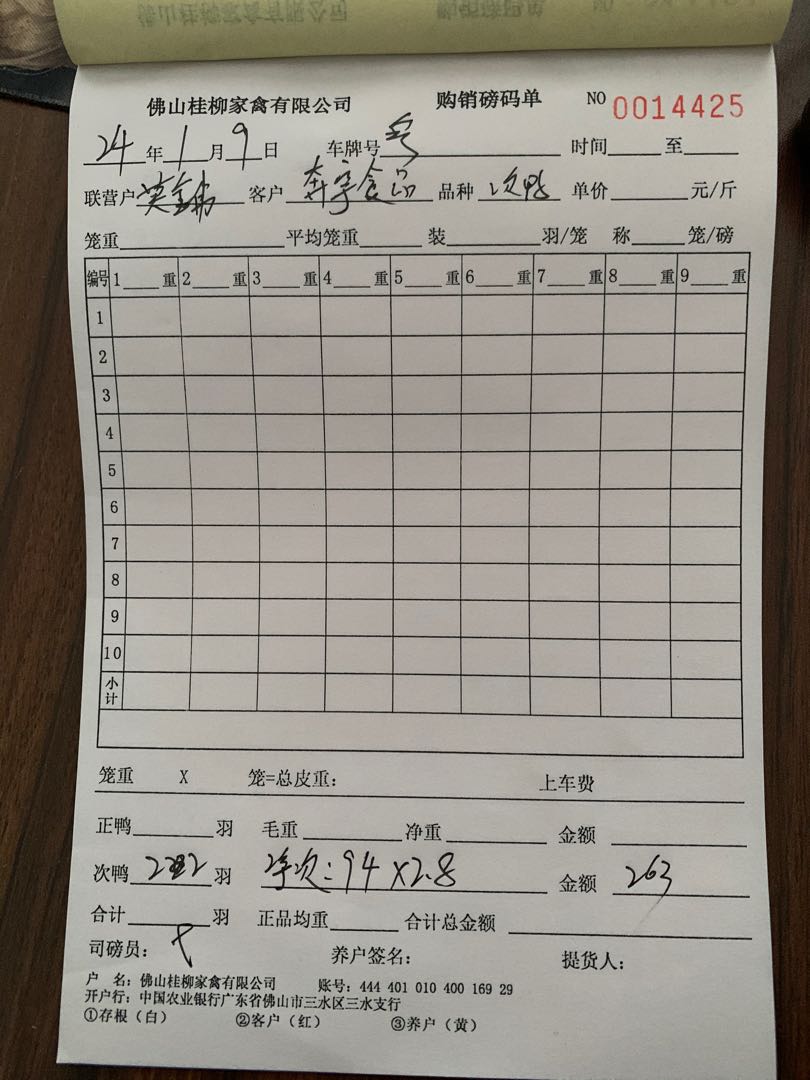 佛山桂柳家禽有限公司 购销磅码单 NO 0014425
24年1月9日 车牌号 时间 至
联营户 客户 奔宇食品 品种 次鸭 单价 元/斤
笼重 平均笼重 装 羽/笼 称 笼/磅
编号 1 重 2 重 3 重 4 重 5 重 6 重 7 重 8 重 9 重
1
2
3
4
5
6
7
8
9
10
小计
笼重 X 笼=总皮重： 上车费
正鸭 羽 毛重 净重 金额
次鸭 羽 净次：94×2.8 金额 263
合计 羽 正品均重 合计总金额
司磅员： 养户签名： 提货人：
户 名：佛山桂柳家禽有限公司 账号：444 401 010 400 169 29
开户行：中国农业银行广东省佛山市三水区三水支行
①存根（白） ②客户（红） ③养户（黄）